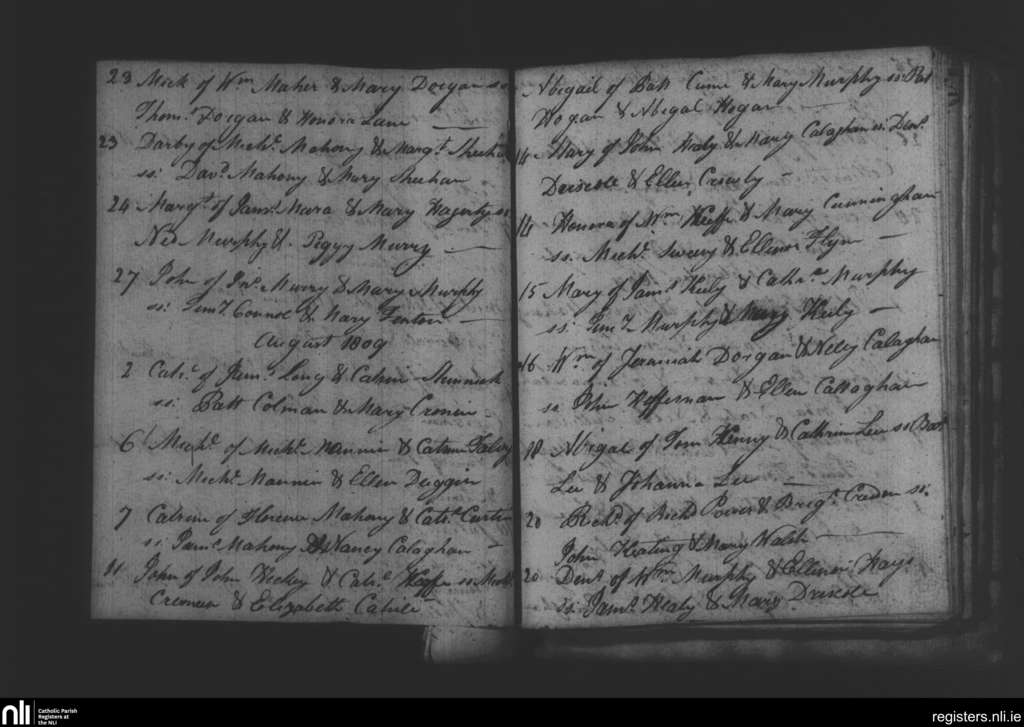 23 Mick of Wm Maher & Mary Dorgan ss
Thoms. Dorgan & Honora Lane
23 Darby of Michl. Mahony & Margt. Sheehan
ss: Davd. Mahony & Mary Sheehan
24 Margt. of Jams. Mara & Mary Hagerty ss
Ned Murphy & Peggy Murry
27 John of Jno. Murry & Mary Murphy
ss: Timy. Connol & Mary Fenton
August 1809
2 Cathe. of Long & Catrin
ss: Batt Colman & Mary Cronen
6 Michl. of Michl. Mannin & Catrin Falvey
ss: Michl. Mannin & Ellen Duggin
7 Catrin of Florence Mahony & Cathe. Curtin
ss. Jams. Mahony & Nancy Calaghan
11 John of John Hickey & Cathe. Keeffe ss
Cremen & Elizabeth
Abigail of Batt & Mary Murphy ss: Pat
Hogan & Abigal Hogan
14 Mary of John Healy & Mary Calaghan ss. Denl.
Driscole & Ellen Crowly
14 Honora of Wm Keeffe & Mary Cunningham
ss. Michl. Sweeny & Ellenor Flyn
15 Mary of Jams. Kiely & Cathe. Murphy
ss: Timy. Murphy & Mary Kiely
16 Wm of Jeramiah Dorgan & Nelly Calaghan
ss John Heffernan & Ellen Callaghan
18 Abigal of Tom Henry & Cathrin Lee ss Bat
Lee & Johanna Lee
20 Richd. of Richd. Power & Bregt. Creden ss:
John Keating & Mary Walsh
20 Denl. of Wm Murphy & Ellenor Hays
ss: Jams. Healy & Mary Driscole
nli
Catholic Parish
Registers at
the NLI
registers.nli.ie